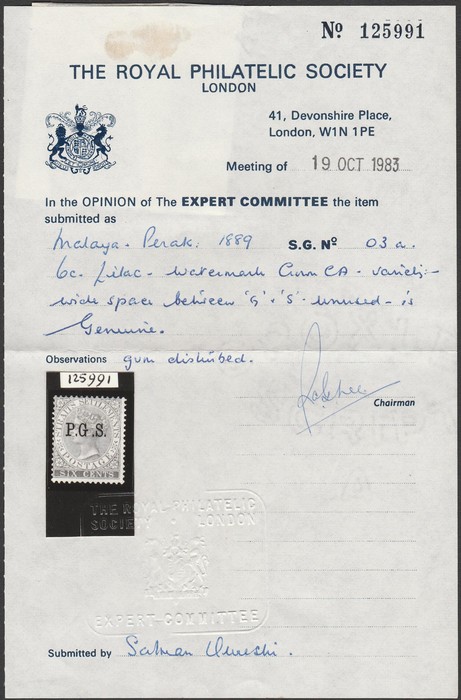 Nº 125991
THE ROYAL PHILATELIC SOCIETY
LONDON
41, Devonshire Place,
London, W1N 1PE
Meeting of 19 OCT 1983
In the OPINION of The EXPERT COMMITTEE the item
submitted as
Malaya - Perak: 1889 S.G. Nº 03a.
6c. Lilac - watermark Crown CA - variety:-
wide space between 'G' & 'S' - unused - is
Genuine.
Observations gum disturbed.
Chairman
125991
P.G.S.
POSTAGE
SIX CENTS
THE ROYAL PHILATELIC
SOCIETY · LONDON
EXPERT COMMITTEE
Submitted by Salman